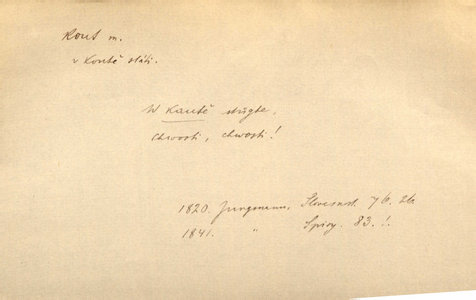 Kout m.
v koutě státi.
W kautě stůgte,
chwosti, chwosti!
1820. Jungmann, Slovesnost. 76. 26
1841. " Spisy. 83. 1.